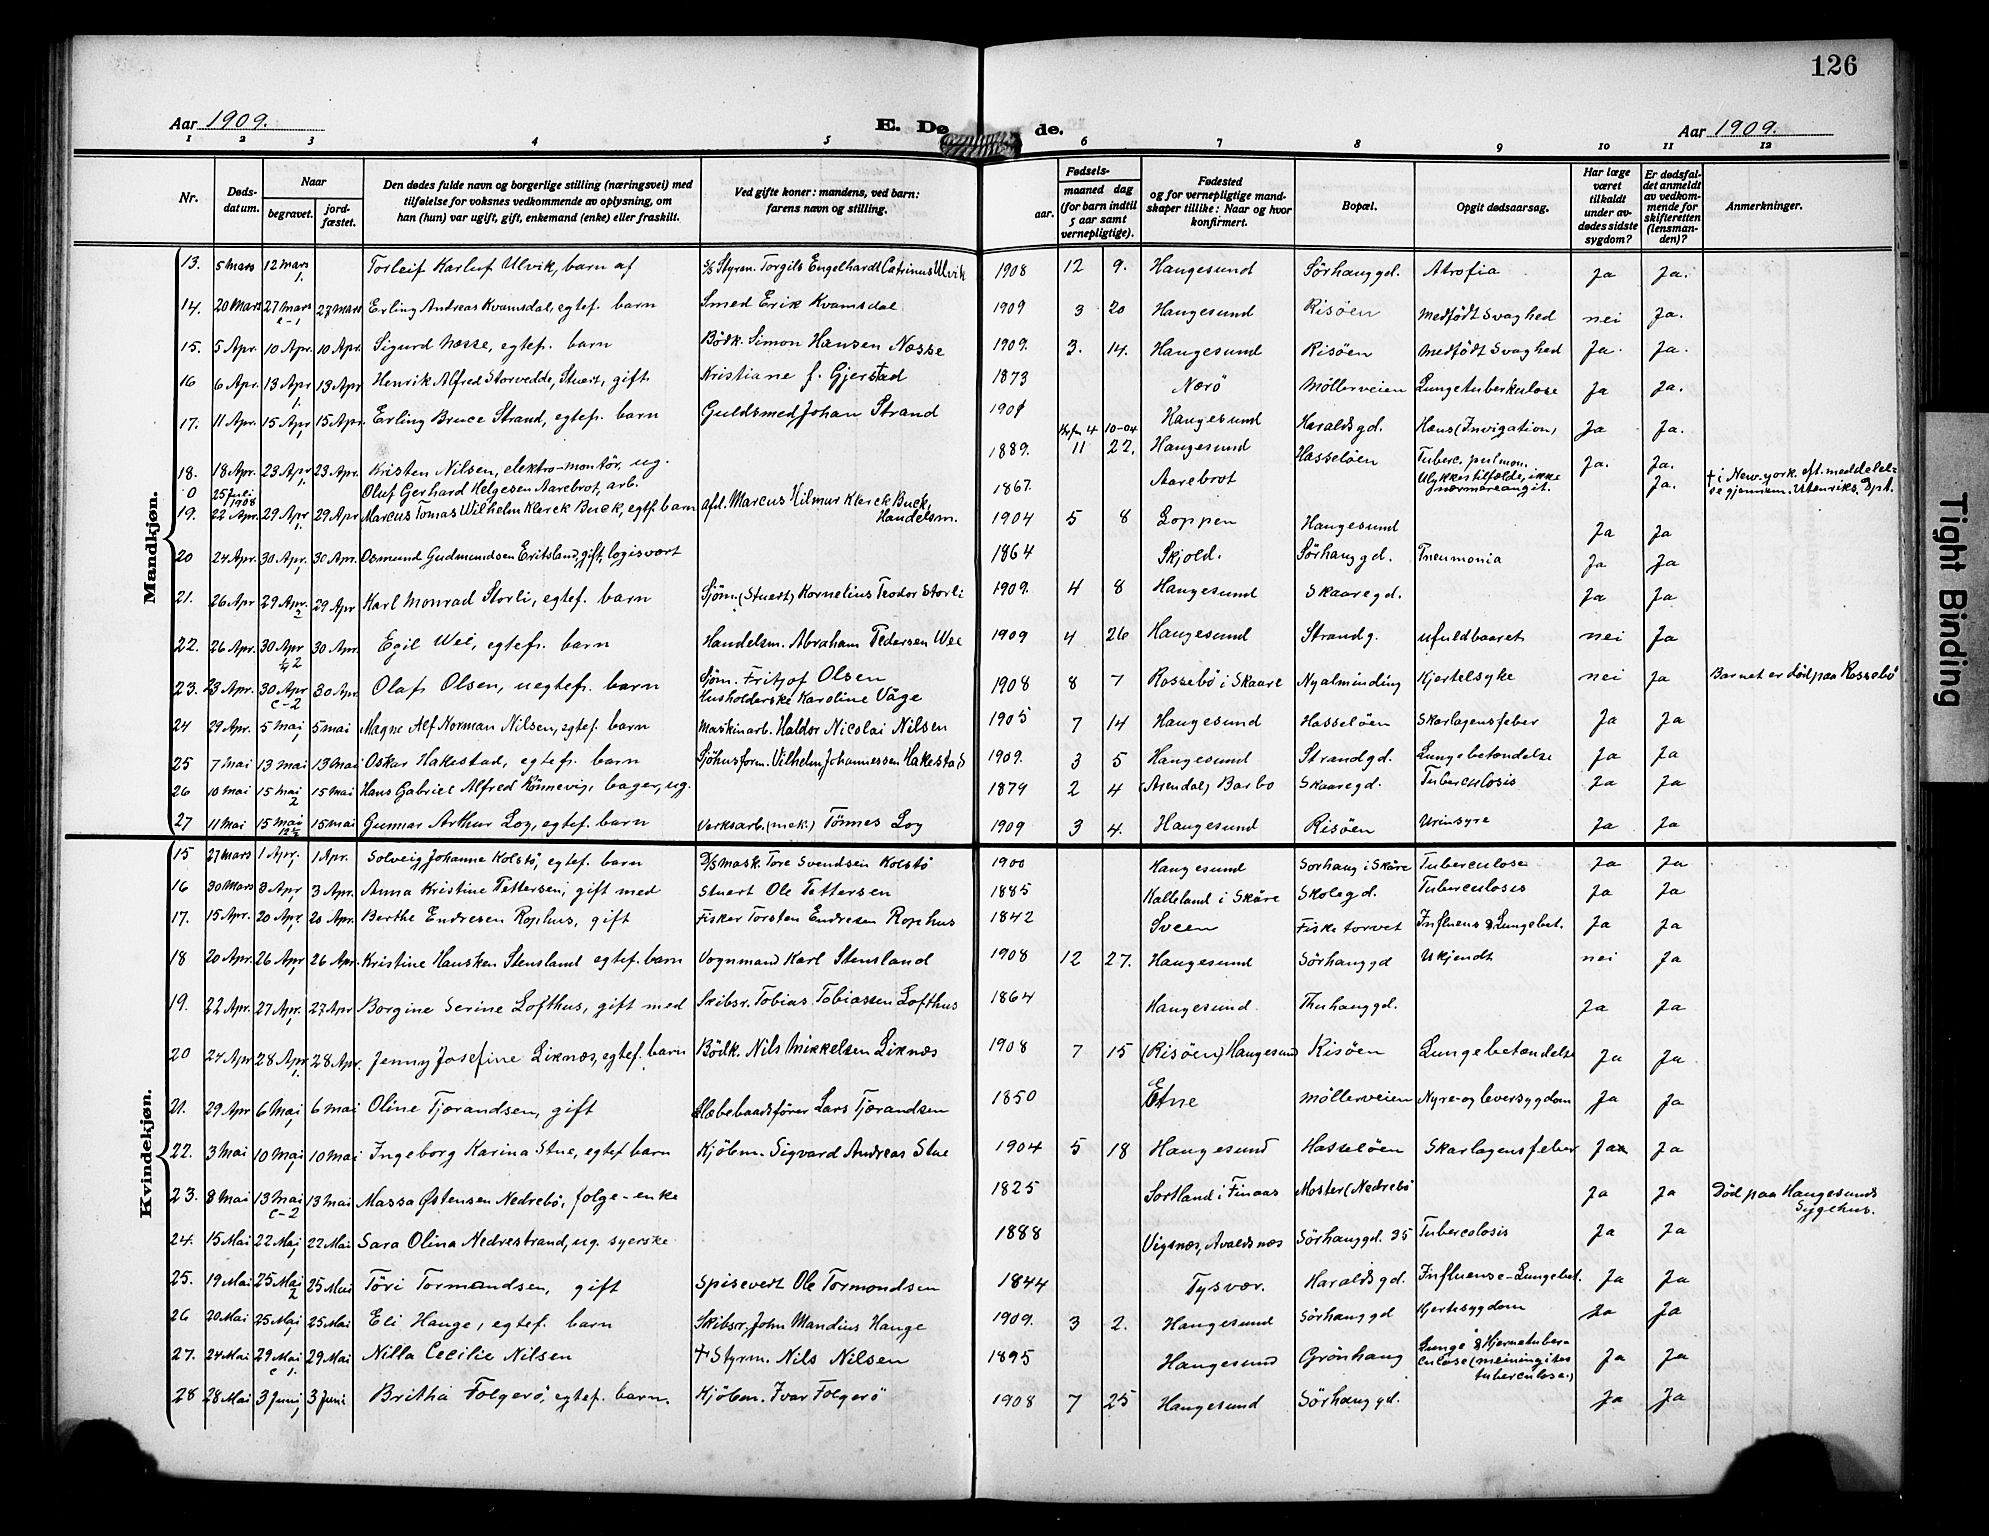 126
Aar 1909.
E. Dø de.
Aar 1909.
1 2 3 4 5 6 7 8 9 10 11 12
Nr.
Døds-
datum.
Naar
begravet.
jord-
fæstet.
Den dødes fulde navn og borgerlige stilling (næringsvei) med
tilføielse for voksnes vedkommende av oplysning, om
han (hun) var ugift, gift, enkemand (enke) eller fraskilt.
Ved gifte koner: mandens, ved barn:
farens navn og stilling.
Fødsels-
aar.
maaned dag
(for barn indtil
5 aar samt
vernepligtige).
Fødested
og for vernepligtige mand-
skaper tillike: Naar og hvor
konfirmert.
Bopæl.
Opgit dødsaarsag.
Har læge
været
tilkaldt
under av-
dødes sidste
sygdom?
Er dødsfal-
det anmeldt
av vedkom-
mende for
skifteretten
(lensman-
den)?
Anmerkninger.
Mandkjøn.
13. 5 mars 12 mars Torleif Karluf Ulvik, barn af S/S Styrm. Torgils Engelhardt Catrinus Ulvik 1908 12 9. Haugesund Sörhauggd. Atrofia Ja Ja.
14. 20 Mars 27 mars 27 mars Erling Andreas Kvamsdal, egtef. barn Smed Erik Kvamsdal 1909 3 20 Haugesund Risöen Medfödt Svaghed nei Ja.
15. 5 Apr. 10 Apr. 10 Apr. Sigurd Næsse, egtef. barn Bödk. Simon Hansen Næsse 1909. 3. 14. Haugesund Risöen Medfödt Svaghed Ja. Ja.
16 6 Apr. 13 Apr 13 Apr Henrik Alfred Storvedde, Stuert, gift Kristiane f. Gjerstad 1873 Nærö Möllerveien Lungetuberkulose Ja Ja.
17. 11 Apr. 15 Apr 15 Apr. Erling Bruce Strand, egtef. barn Guldsmed Johan Strand 1901 Haugesund Haraldsgd. Hæns (Invigation) Ja Ja.
18. 18 Apr. 23 Apr 23 Apr. Kristen Nilsen, elektro-montör, ug. 1889. 11 22. Haugesund Hasselöen Tuberc. pulmon. Ja. Ja.
0 25 Juli 1908 Oluf Gerhard Helgesen Aarebrot, arb. 1867. Aarebrot Ulykkestilfælde, ikke
nærmere angit. Ja. † i New-york eft. meddelel-
se gjennem Utenriks. Dpt.
19. 22 Apr. 29 Apr 29 Apr Marcus Tomas Wilhelm Klerck Buck, egtf. barn afd. Marcus Vilmur Klerck Buck,
Handelsm. 1904 5 8 Loppen Haugesund Ja Ja
20 24 Apr. 30 Apr 30 Apr. Osmund Gudmundsen Eritsland, gift, logisvært 1864 Skjold. Sörhauggd. Pneumonia Ja Ja
21. 26 Apr 29 Apr. 2 29 Apr Karl Monrad Storli, egtef. barn Sjöm. (Stuert) Kornelius Teodor Storli 1909. 4 8 Haugesund Skaaregd. Ja Ja
22. 26 Apr. 30 Apr 30 Apr. Egil Wee, egtef. barn Handelsm. Abraham Pedersen Wee 1909 4 26 Haugesund Strandg. ufuldbaaret nei Ja
23. 23 Apr. 30 Apr 30 Apr Olaf Olsen, uegtef. barn Sjøm. Fritjof Olsen
Husholderske Karoline Våge 1908 8 7 Rossebö i Skaare Nyalminding Kjertelsyke nei Ja Barnet er død paa Rossebö
24 29 Apr. 5 mai 5 mai Magne Alf Korman Nilsen, egtef. barn Maskinarb. Haldor Nicolai Nilsen 1905 7 14 Haugesund Hasselöen Skarlagensfeber Ja Ja
25 7 mai 13 mai 13 mai Oskar Hakestad, egtef. barn Sjöhusform. Vilhelm Johannessen Hakestad 1909. 3 5 Haugesund Strandgd. Lungebetændelse Ja Ja
26 10 mai 15 mai 2 15 mai Hans Gabriel Alfred Rönnevig, bager, ug. 1879 2 4 (Arendal) Barbo Skaaregd. Tuberculosis Ja Ja
27 11 Mai 15 mai 12½ 15 mai Gunnar Arthur Loy, egtef. barn Verksarb. (mek.) Tönnes Loy 1909 3 4. Haugesund Risöen Urinsyre Ja Ja
Kvindekjøn.
15 27 mars 1 Apr. 1 Apr. Solveig Johanne Kolstö, egtef. barn D/S mask. Tore Svendsen Kolstö 1900 Haugesund Sörhaug i Skåre Tuberculose Ja Ja
16 30 Mars 3 Apr 3 Apr. Anna Kristine Pettersen, gift med Stuert Ole Pettersen 1885 Kalleland i Skåre Skolegd. Tuberculosis Ja Ja
17. 15 Apr. 20 Apr. 20 Apr. Berthe Endresen Rophus, gift Fisker Torsten Endresen Rophus 1842 Sveen Fisketorvet Influens & Lungebet. Ja Ja
18 20 Apr. 26 Apr 26 Apr. Kristine Hausken Stensland egtef. barn Vognmand Karl Stensland 1908 12 27. Haugesund Sörhauggd Ukjendt nei Ja
19. 22 Apr. 27 Apr 27 Apr Borgine Serine Lofthus, gift med Skibsr. Tobias Tobiassen Lofthus 1864 Haugesund Thuhauggd. Ja Ja
20 24 Apr 28 Apr 28 Apr. Jenny Josefine Liknæs, egtef. barn Bödk. Nils Mikkelsen Liknæs 1908 7 15 (Risöen) Haugesund Risöen Lungebetændelse Ja Ja
21. 29 Apr 6 Mai 6 mai Oline Tjørandsen, gift Slæbebaadsfører Lars Tjørandsen 1850 Etne Möllerveien Nyre- og leversygdom Ja Ja
22. 3 Mai 10 Mai 10 mai Ingeborg Karina Stue, egtef. barn Kjöbm. Sigvard Andreas Stue 1904 5 18 Haugesund Hasselöen Skarlagensfeber Ja Ja
23. 8 Mai 13 Mai c-2 13 Mai Massa Østensen Nedrebö, folge-enke 1825 Sortland i Finaas Moster (Nedrebö Ja Ja Död paa Haugesunds
Sygehus.
24. 15 Mai 22 Mai 22 Mai Sara Olina Nedrestrand, ug. syerske 1888 Vigsnæs, Avaldsnæs Sörhauggd. 95 Tubercolosis Ja Ja
25. 19 Mai 25 Mai 2 25 Mai Töri Tormandsen, gift Spisevert Ole Tormondsen 1844 Tysvær. Haraldsgd. Influense-Lungebet. Ja Ja
26 20 Mai 25 Mai 25 Mai Eli Hauge, egtef. barn Skibsr. John Mandius Hauge 1909. 3 2. Haugesund Sörhauggd Kjertesygdom Ja Ja
27. 24 Mai 29 Mai c 1. 29 Mai Nilla Cecilie Nilsen † Styrm. Nils Nilsen 1895 Haugesund Grönhaug Lunge & Hjernetuber-
culose (meiningites
tuberculose.) Ja Ja
28 28 Mai 3 Juni 3 Juni Britha Folgerö, egtef. barn. Kjöbm. Ivar Folgerö 1908 7 25 Haugesund Sörhauggd. Ja Ja
Tight Binding